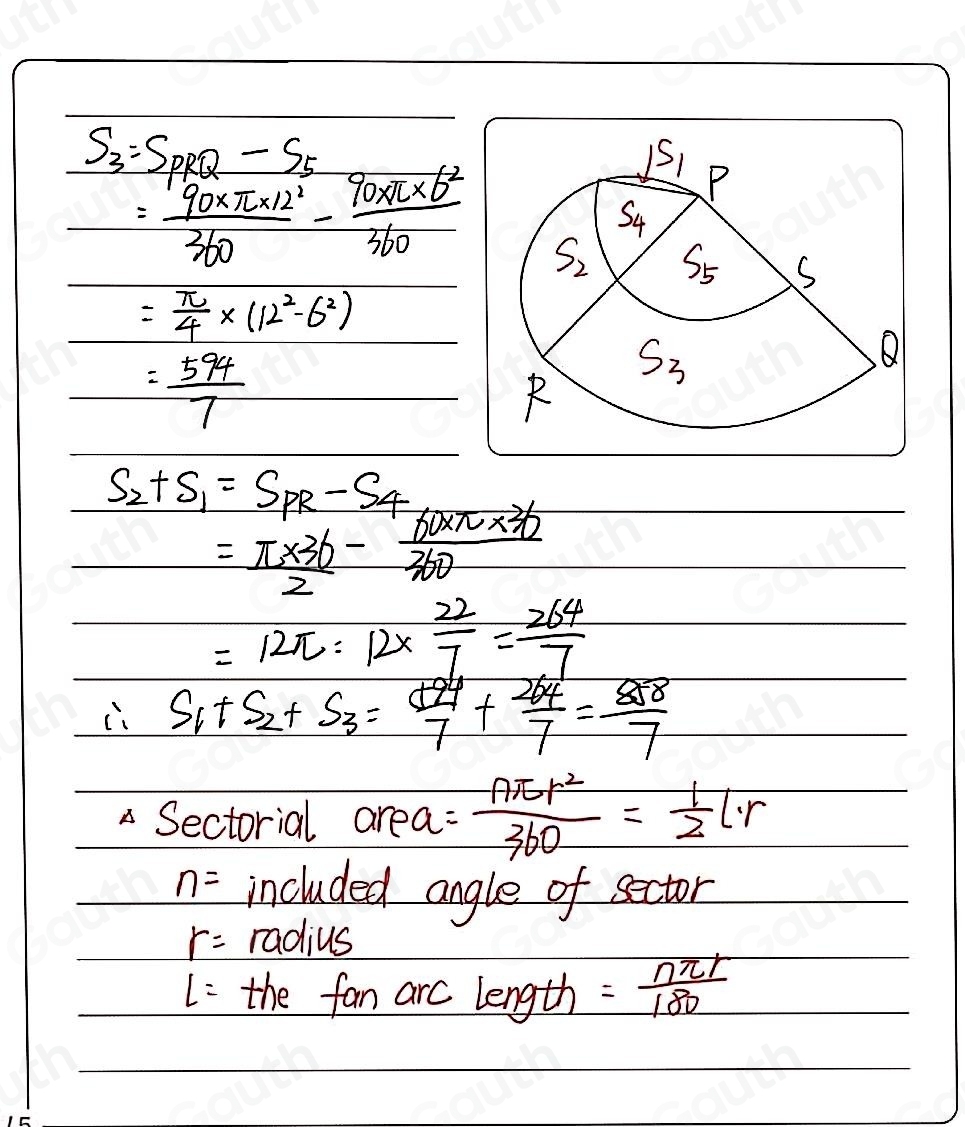 S₃=S_PRQ - S₅
= 90×π×12²/360 - 90×π×6²/360
= π/4 × (12²-6²)
= 594/7
S₁
P
S₄
S₂
S₅
S
S₃
Q
R
S₂+S₁= S_PR - S₄
= π×36/2 - 60×π×36/360
= 12π = 12× 22/7 = 264/7
∴ S₁+S₂+S₃= 594/7 + 264/7 = 858/7
△ Sectorial area= nπr²/360 = 1/2 l·r
n= included angle of sector
r= radius
l= the fan arc length = nπr/180
15
Gauth